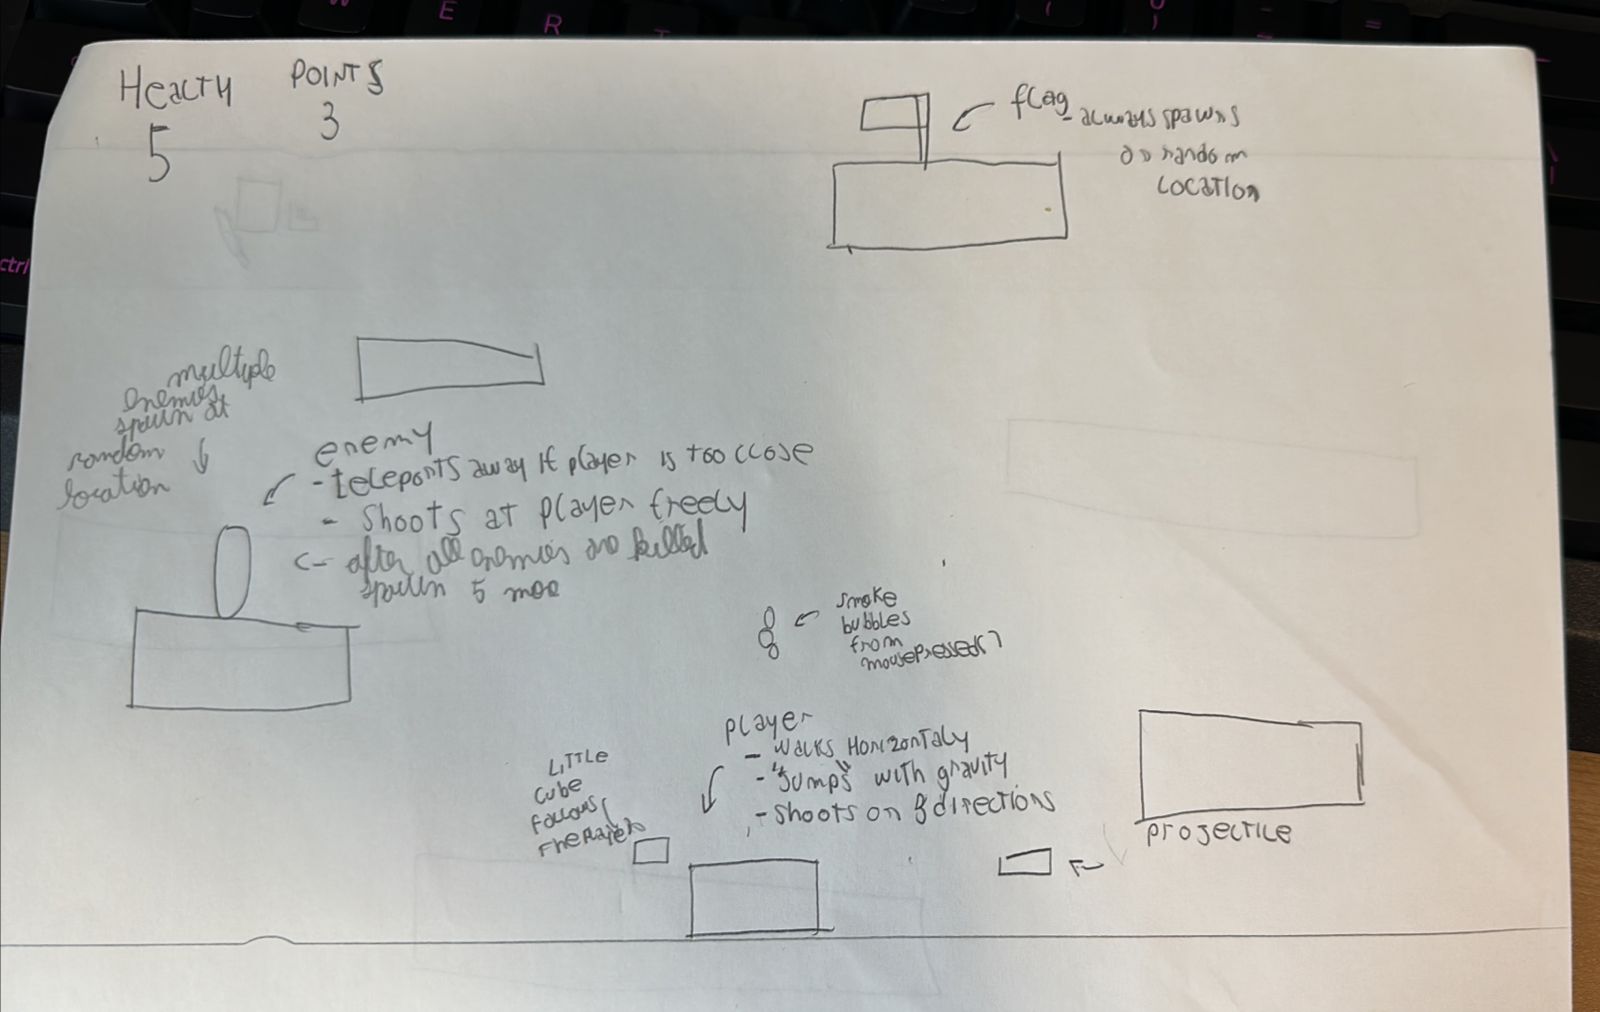 W
E
R
T
ctrl
Healty POINTS
5 3
flag
- always spawns
on random
location
multiple
enemies
spawn at
random
location
enemy
- teleports away if player is too close
- shoots at player freely
after all enemies are killed
spawn 5 moe
smoke
bubbles
from
mousePressed()
player
- walks Horizontaly
- "Jumps" with gravity
- shoots on 8 directions
Little
cube
follows
the player
projectile